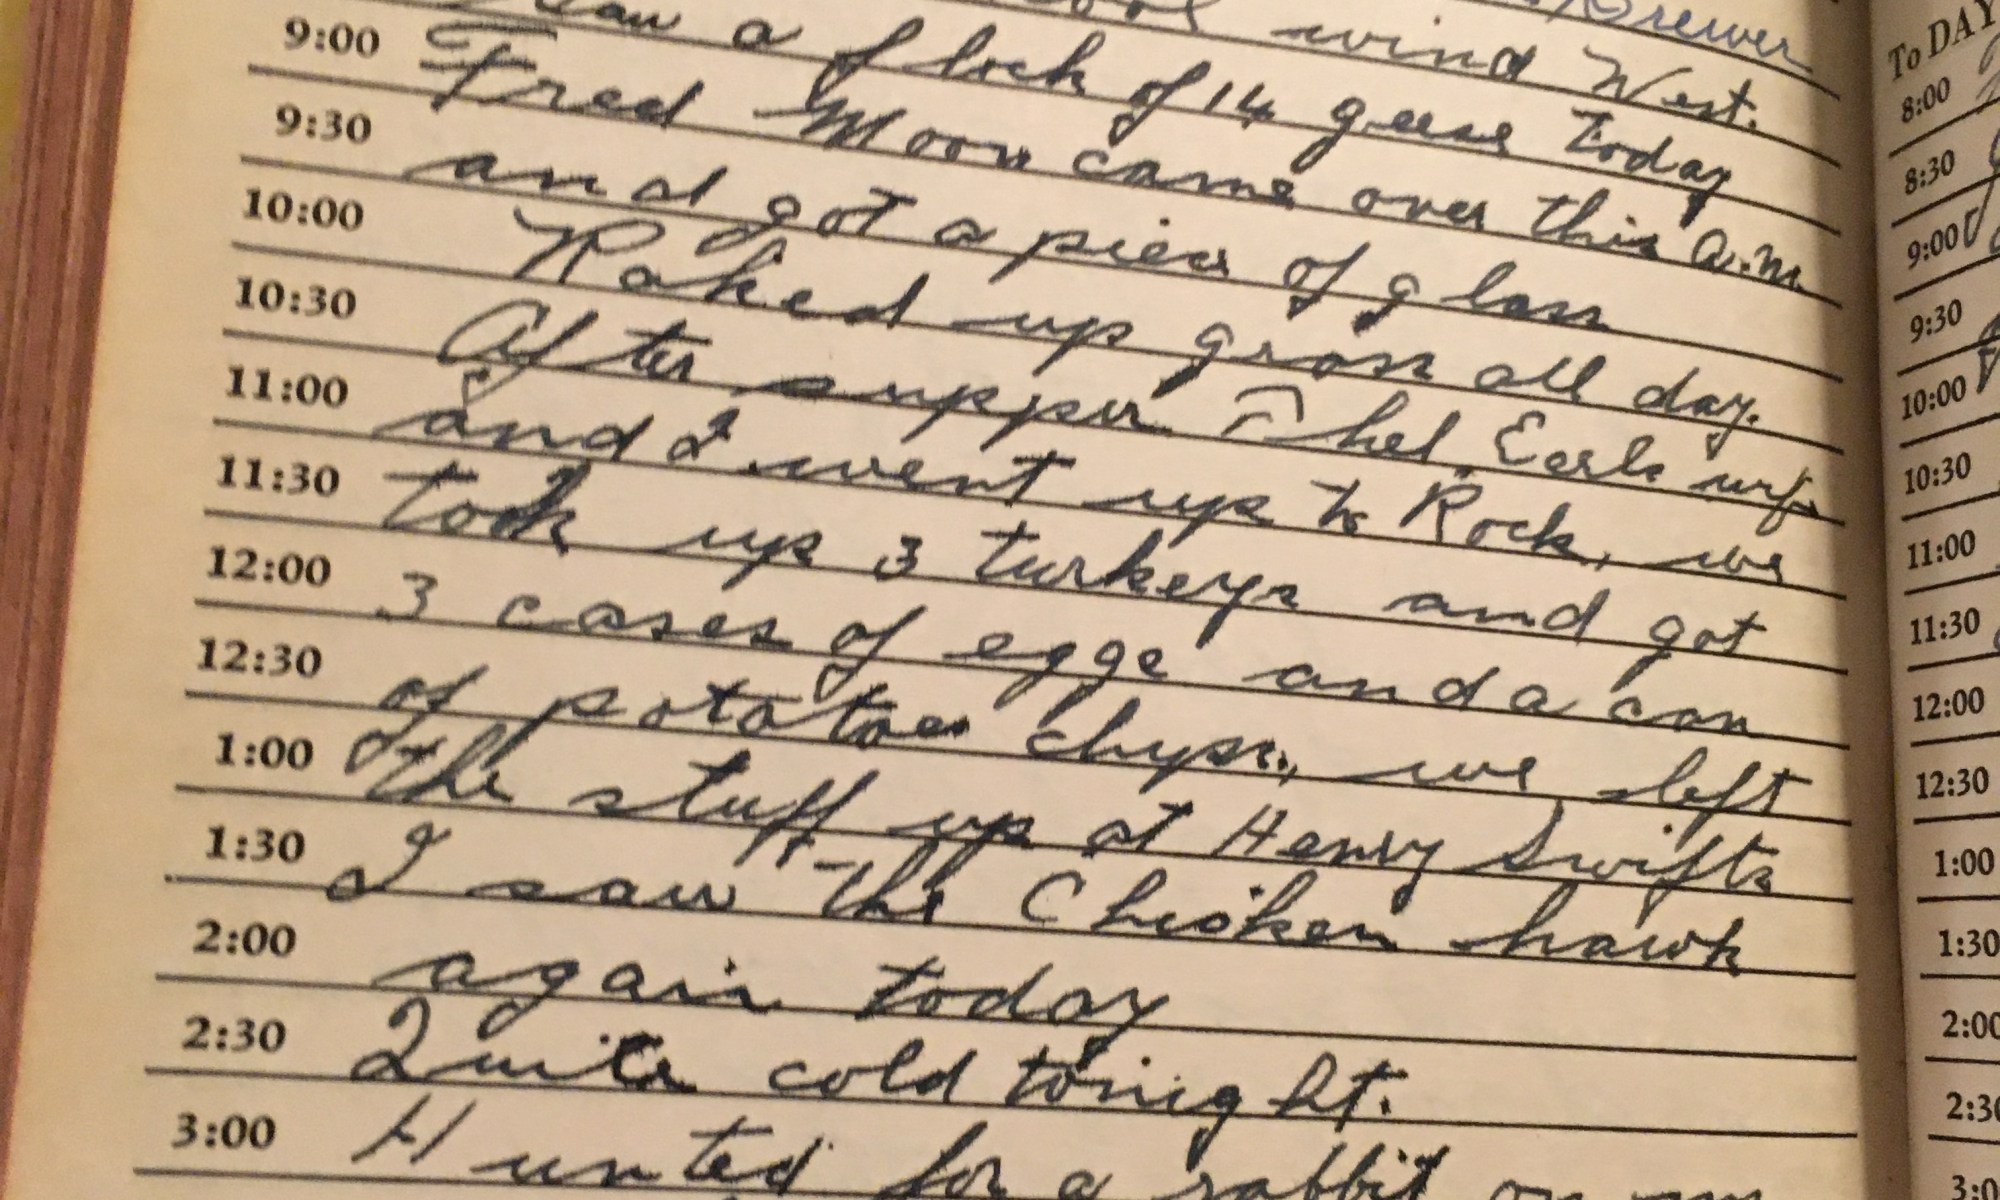 Brewer
wind West.
saw a flock of 14 geese today
9:00 Fred Moon came over this a.m.
9:30 and got a piece of glass
10:00 Raked up grass all day.
10:30 After supper Thel Earls wife
11:00 and I went up to Rock, we
11:30 took up 3 turkeys and got
12:00 3 cases of eggs and a can
12:30 of potatoe chips, we left
1:00 the stuff up at Henry Swifts
1:30 I saw the Chicken hawk
2:00 again today
2:30 Quite cold tonight.
3:00 Hunted for a rabbit on my
To DAY
8:00
8:30
9:00
9:30
10:00
10:30
11:00
11:30
12:00
12:30
1:00
1:30
2:00
2:30
3:0